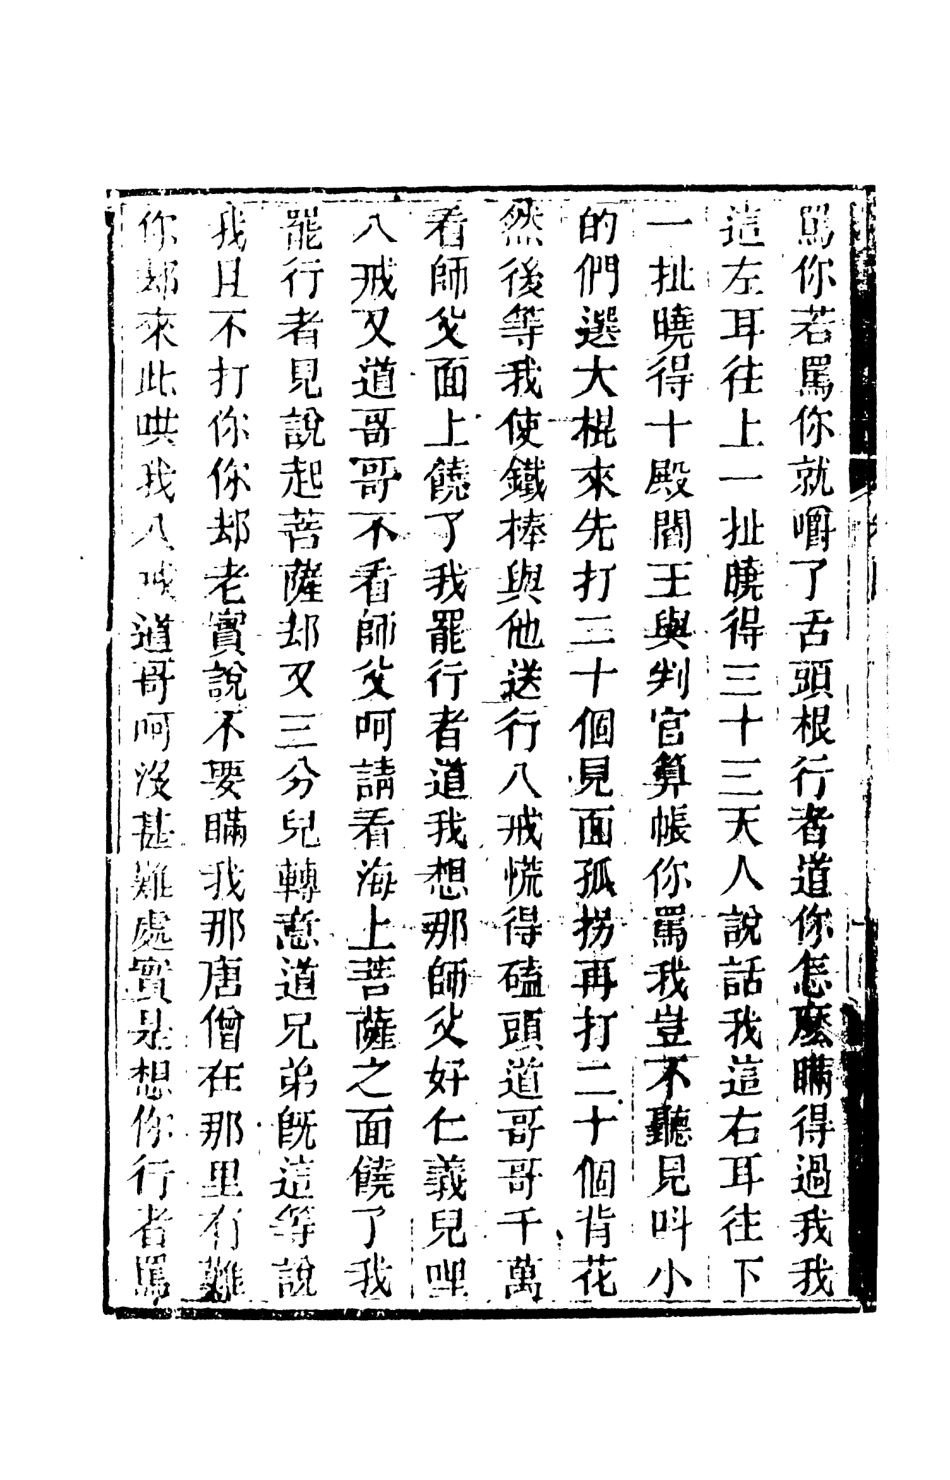 罵你若罵你就嚼了舌頭根行者道你怎麼瞞得過我我
這左耳往上一扯曉得三十三天人說話我這右耳往下
一扯曉得十殿閻王與判官算帳你罵我豈不聽見叫小
的們選大棍來先打二十個見面孤拐再打二十個背花
然後等我使鐵棒與他送行八戒慌得磕頭道哥哥千萬
看師父面上饒了我罷行者道我想那師父好仁義兒哩
八戒又道哥哥不看師父呵請看海上菩薩之面饒了我
罷行者見說起菩薩却又三分兒轉意道兄弟旣這等說
我且不打你你却老實說不要瞞我那唐僧在那里有難
你却來此哄我八戒道哥呵沒甚難處實是想你行者罵